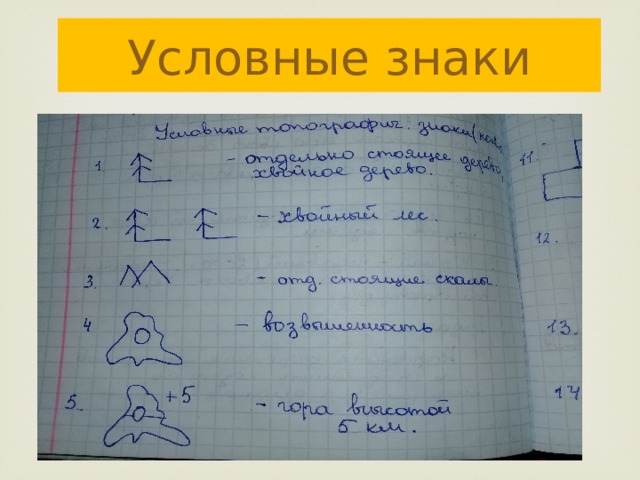 Условные знаки
Условные топографич. знаки
1. - отдельно стоящее дерево,
хвойное дерево.
2. - хвойный лес.
3. - отд. стоящие скалы.
4 - возвышенность
5. +5 - гора высотой
5 км.
11.
12.
13.
14